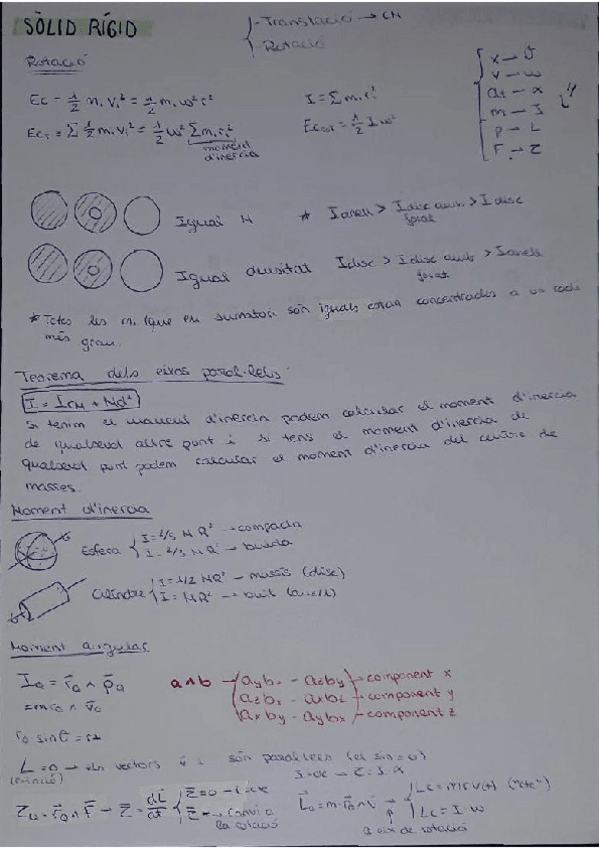 SÒLID RÍGID
- Translació → CM
- Rotació
Rotació
Ec = 1/2 m₁ v₁² = 1/2 m₁ ω² r²
I = Σ mᵢ rᵢ²
Ec_T = Σ 1/2 mᵢ vᵢ² = 1/2 ω² Σ mᵢ rᵢ²
moment d'inèrcia
Ec_rot = 1/2 I ω²
v — ω
m — I
p — L
F — τ
Igual M * I anell > I disc amb forat > I disc
Igual densitat I disc > I disc amb forat > I anell
* Totes les mᵢ (que en sumatori són iguals estan concentrades a un radi
més gran.
Teorema dels eixos paral·lels:
I = I_CM + Md²
Si tenim el moment d'inèrcia podem calcular el moment d'inèrcia
de qualsevol altre punt i si tens el moment d'inèrcia de
qualsevol punt podem calcular el moment d'inèrcia del centre de
masses.
Moment d'inèrcia
Esfera
I = 2/5 MR² → compacta
I = 2/3 MR² → buida
Cilindre
I = 1/2 MR² — massís (disc)
I = MR² → buit (anell)
Moment angular
= m r₀ ∧ v̄₀
a∧b
ay bz - az by → component x
az bx - ax bz → component y
ax by - ay bx → component z
L = 0 → els vectors són paral·lels (el sin = 0)
dL/dt
la rotació
Lc = I · ω
a eix de rotació